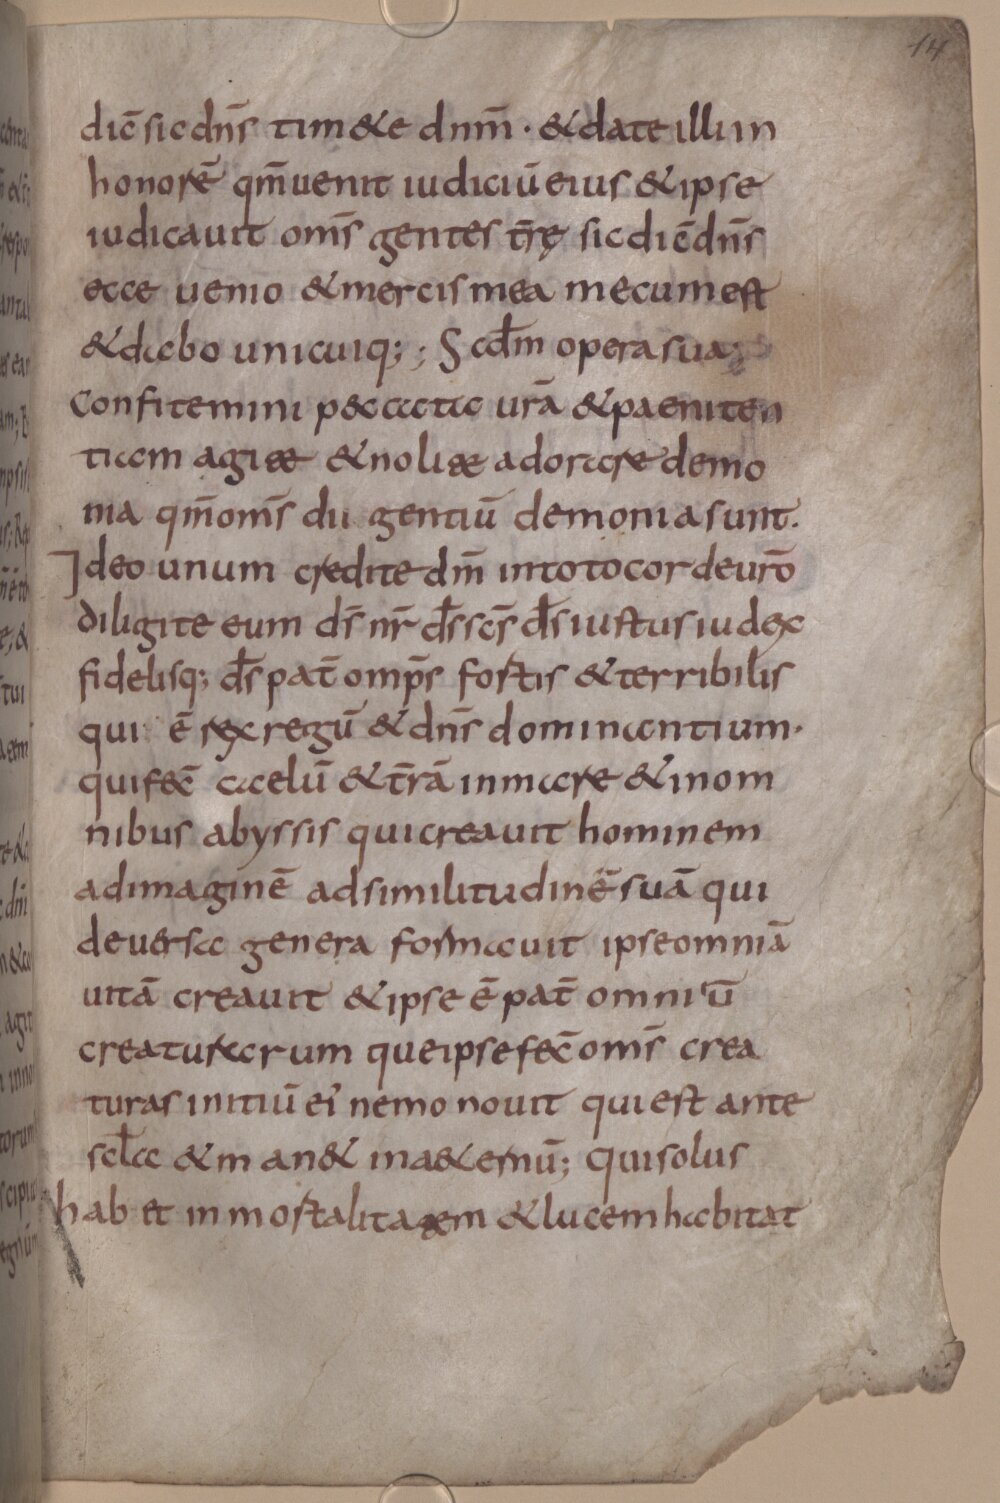 14
dic̄ sic dn̄s tim&e dnm̄ · & date illi in
honorē qm̄ uenit iudiciū eius & ipse
iudicauit oms̄ gentes t̄rę sic dic̄ dn̄s
ecce uenio & mercis mea mecum est
& dabo unicuiq; ; Scdm̄ opera sua;
Confitemini peccata urā & paeniten
tiam agite & nolite adorare demo
nia qm̄ oms̄ dii gentiū demonia sunt.
Ideo unum credite dm̄ in toto corde uro᷃
diligite eum ds̄ nr̄ ds̄ scs̄ ds̄ iustus iudex
fidelisq; ds̄ pat̄ omps̄ fortis & terribilis
qui ē rex regū & dn̄s dominantium·
qui fec̄ caelū & t̄rā in mare & in om
nibus abyssis qui creauit hominem
ad imaginē ad similitudinē suā qui
deuersa genera formauit ipse omniā
uitā creauit & ipse ē pat̄ omniū
creaturarum que ipse fec̄ oms̄ crea
turas initiū ei' nemo nouit qui est ante
scl̄a & man& in a&ernū; qui solus
hab et inmortalitatem & lucem habitat